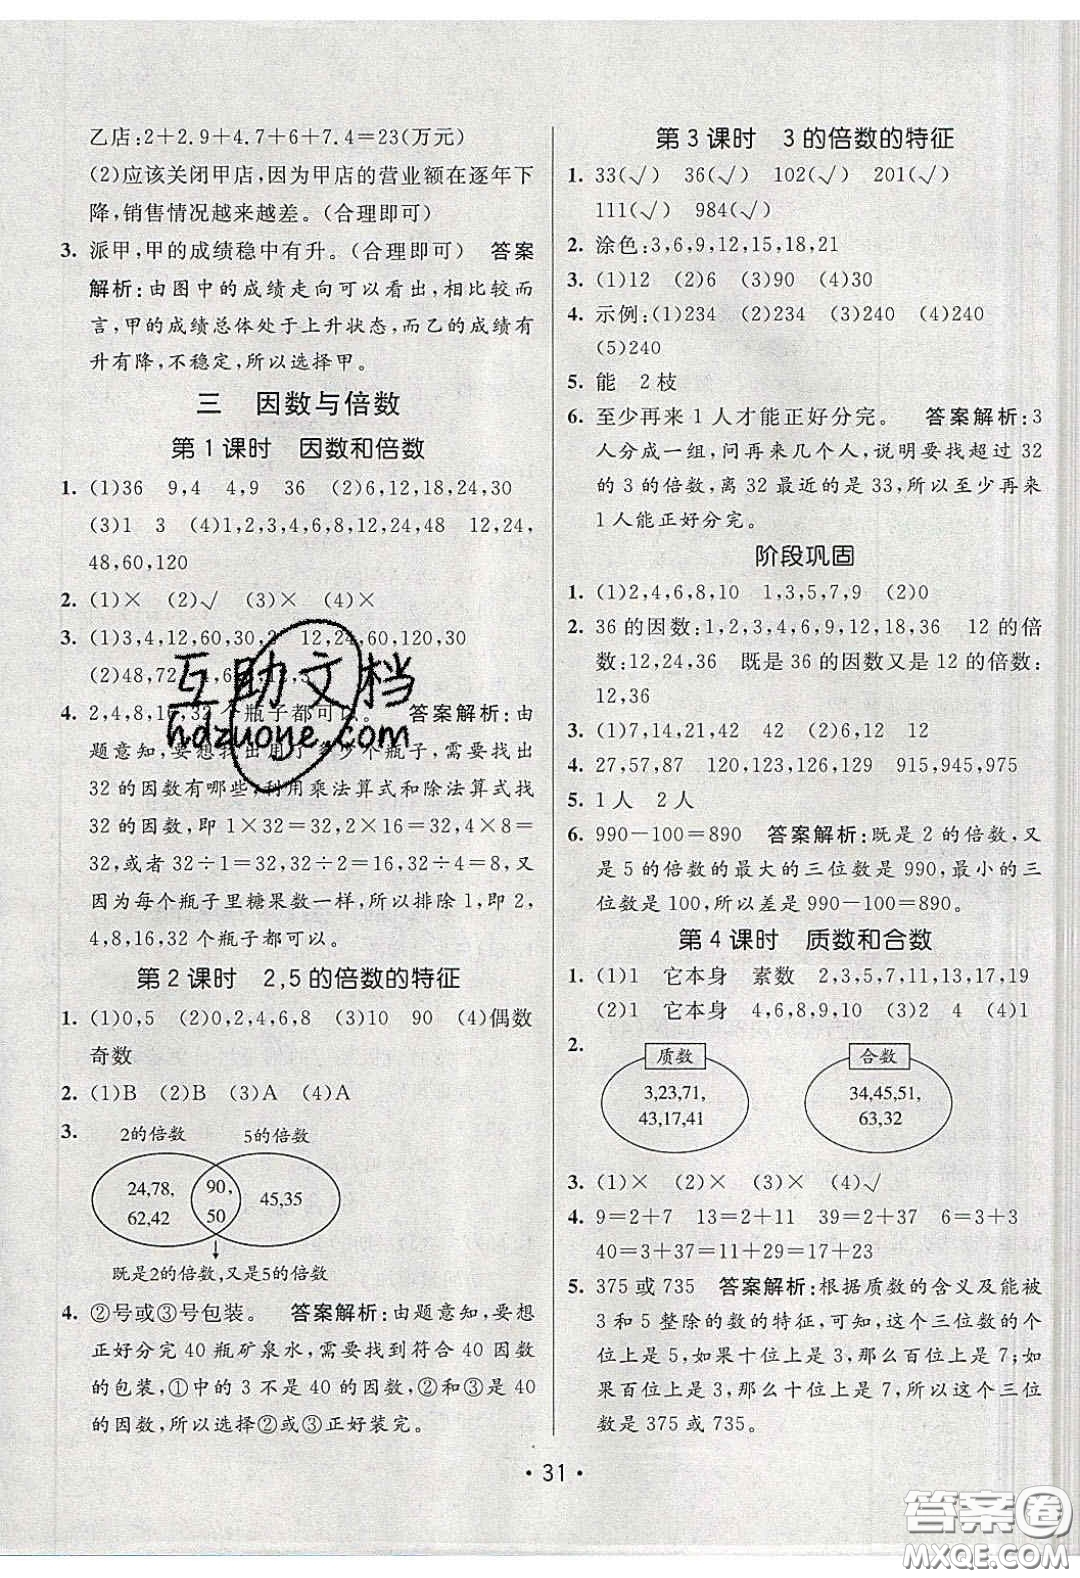 乙店:2+2.9+4.7+6+7.4=23(万元)
(2)应该关闭甲店,因为甲店的营业额在逐年下
降,销售情况越来越差。(合理即可)
3. 派甲,甲的成绩稳中有升。(合理即可) 答案
解析:由图中的成绩走向可以看出,相比较而
言,甲的成绩总体处于上升状态,而乙的成绩有
升有降,不稳定,所以选择甲。
三 因数与倍数
第1课时 因数和倍数
1. (1)36 9,4 4,9 36 (2)6,12,18,24,30
(3)1 3 (4)1,2,3,4,6,8,12,24,48 12,24,
48,60,120
2. (1)× (2)√ (3)× (4)×
3. (1)3,4,12,60,30,2 12,24,60,120,30
(2)48,72
4. 2,4,8,16,32个瓶子都可以。 答案解析:由
题意知,要想找出用了多少个瓶子,需要找出
32的因数有哪些,利用乘法算式和除法算式找
32的因数,即1×32=32,2×16=32,4×8=
32,或者32÷1=32,32÷2=16,32÷4=8,又
因为每个瓶子里糖果数一样,所以排除1,即2,
4,8,16,32个瓶子都可以。
第2课时 2,5的倍数的特征
1. (1)0,5 (2)0,2,4,6,8 (3)10 90 (4)偶数
奇数
2. (1)B (2)B (3)A (4)A
3. 2的倍数 5的倍数
24,78, 90, 45,35
62,42 50
既是2的倍数,又是5的倍数
4. ②号或③号包装。 答案解析:由题意知,要想
正好分完40瓶矿泉水,需要找到符合40因数
的包装,①中的3不是40的因数,②和③是40
的因数,所以选择②或③正好装完。
第3课时 3的倍数的特征
1. 33(√) 36(√) 102(√) 201(√)
111(√) 984(√)
2. 涂色:3,6,9,12,15,18,21
3. (1)12 (2)6 (3)90 (4)30
4. 示例:(1)234 (2)234 (3)240 (4)240
(5)240
5. 能 2枝
6. 至少再来1人才能正好分完。 答案解析:3
人分成一组,问再来几个人,说明要找超过32
的3的倍数,离32最近的是33,所以至少再来
1人能正好分完。
阶段巩固
1. (1)2,4,6,8,10 1,3,5,7,9 (2)0
2. 36的因数:1,2,3,4,6,9,12,18,36 12的倍
数:12,24,36 既是36的因数又是12的倍数:
12,36
3. (1)7,14,21,42 (2)6,12 12
4. 27,57,87 120,123,126,129 915,945,975
5. 1人 2人
6. 990-100=890 答案解析:既是2的倍数,又
是5的倍数的最大的三位数是990,最小的三
位数是100,所以差是990-100=890。
第4课时 质数和合数
1. (1)1 它本身 素数 2,3,5,7,11,13,17,19
(2)1 它本身 4,6,8,9,10 (3)2 4 (4)1
2. 质数 合数
3,23,71, 34,45,51,
43,17,41 63,32
3. (1)× (2)× (3)× (4)√
4. 9=2+7 13=2+11 39=2+37 6=3+3
40=3+37=11+29=17+23
5. 375或735 答案解析:根据质数的含义及能被
3和5整除的数的特征,可知,这个三位数的个
位上是5,如果十位上是3,那么百位上是7;如
果百位上是3,那么十位上是7,所以这个三位
数是375或735。
· 31 ·
互助文档
hdzuoye.com
答案圈
MXQE.COM